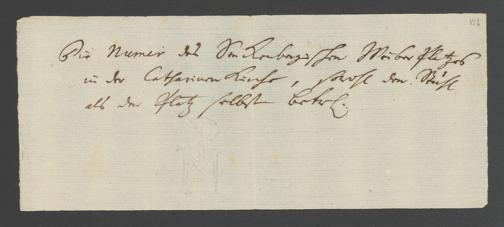 Die Numer des Senckenbergischen Weiber Platzes
in der Catharinen Kirche, sowohl den Stuhl
als den Platz selbst betref.